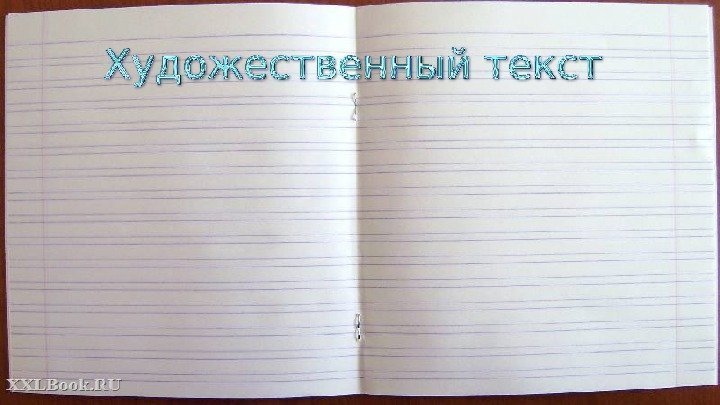 Художественный текст
XXLBook.RU